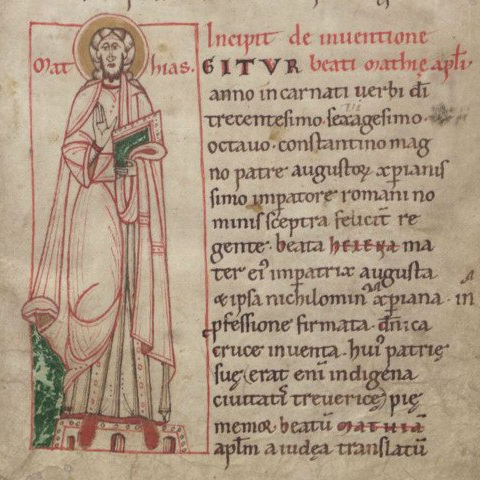 Mathias.
Incipit de inuentione
GITVR beati Mathię apłi.
anno incarnati uerbi dī
trecentesimo. sexagesimo.
octauo. constantino mag
no patre augustoꝝ xpianis
simo impatore romani no
minis sceptra feliciť re
gente. beata HELENA ma
ter eiꝰ impatrix augusta
& ipsa nichilominꝰ xpiana. in
pfessione firmata. dn̄ica
cruce inuenta. huiꝰ patrię
suę (erat enī indigena
ciuitatꝭ treuericę) pię
memor. beatū MATHIĀ
apłm a iudęa translatū